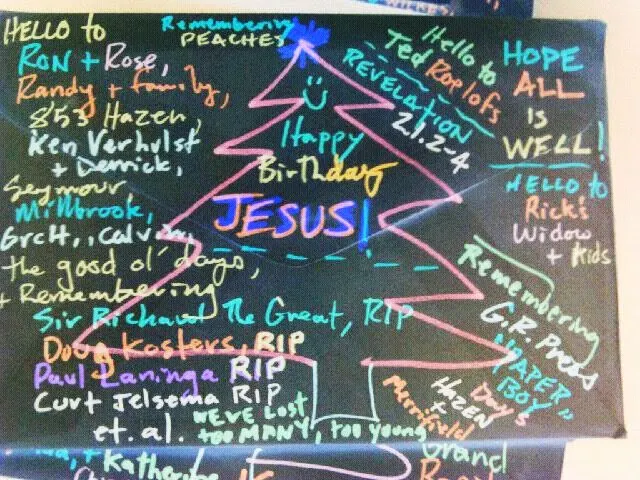 HELLO to
Ron + Rose,
Randy + family,
853 Hazen,
Ken Verhulst
+ Derrick,
Seymour,
Millbrook,
GRCH, Calvin,
the good ol' days,
+ Remembering
Sir Richard The Great, RIP
Doug Kosters, RIP
Paul Laninga RIP
Curt Jelsema RIP
et. al. WE'VE LOST
too MANY, too young
Remembering
PEACHES
Happy
Birthday
JESUS!
REVELATION
21.2-4
Hello to
Ted Roelofs
HOPE
ALL
is
WELL!
HELLO to
Rick's
Widow
+ Kids
Remembering
G.R. Press
"PAPER
BOY"
Days
HAZEN +
Merrifield
+ Katherine
Grand